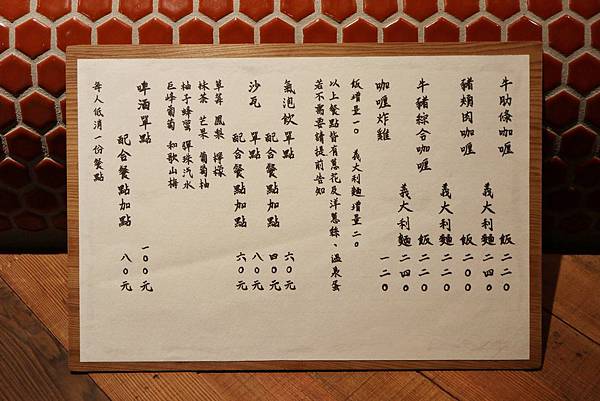 牛肋條咖喱　飯二二〇
義大利麵二四〇
豬焢肉咖喱　飯二〇〇
義大利麵二二〇
牛豬綜合咖喱　飯二二〇
義大利麵二四〇
咖喱炸雞　一二〇
飯增量一〇　義大利麵增量二〇
以上餐點皆有蔥花及洋蔥絲、溫泉蛋
若不需要請提前告知
氣泡飲單點　六〇元
配合餐點加點　四〇元
沙瓦　單點　八〇元
配合餐點加點　六〇元
草莓　鳳梨　檸檬
抹茶　芒果　葡萄柚
柚子蜂蜜　彈珠汽水
巨峰葡萄　和歌山梅
啤酒單點　一〇〇元
配合餐點加點　八〇元
每人低消一份餐點